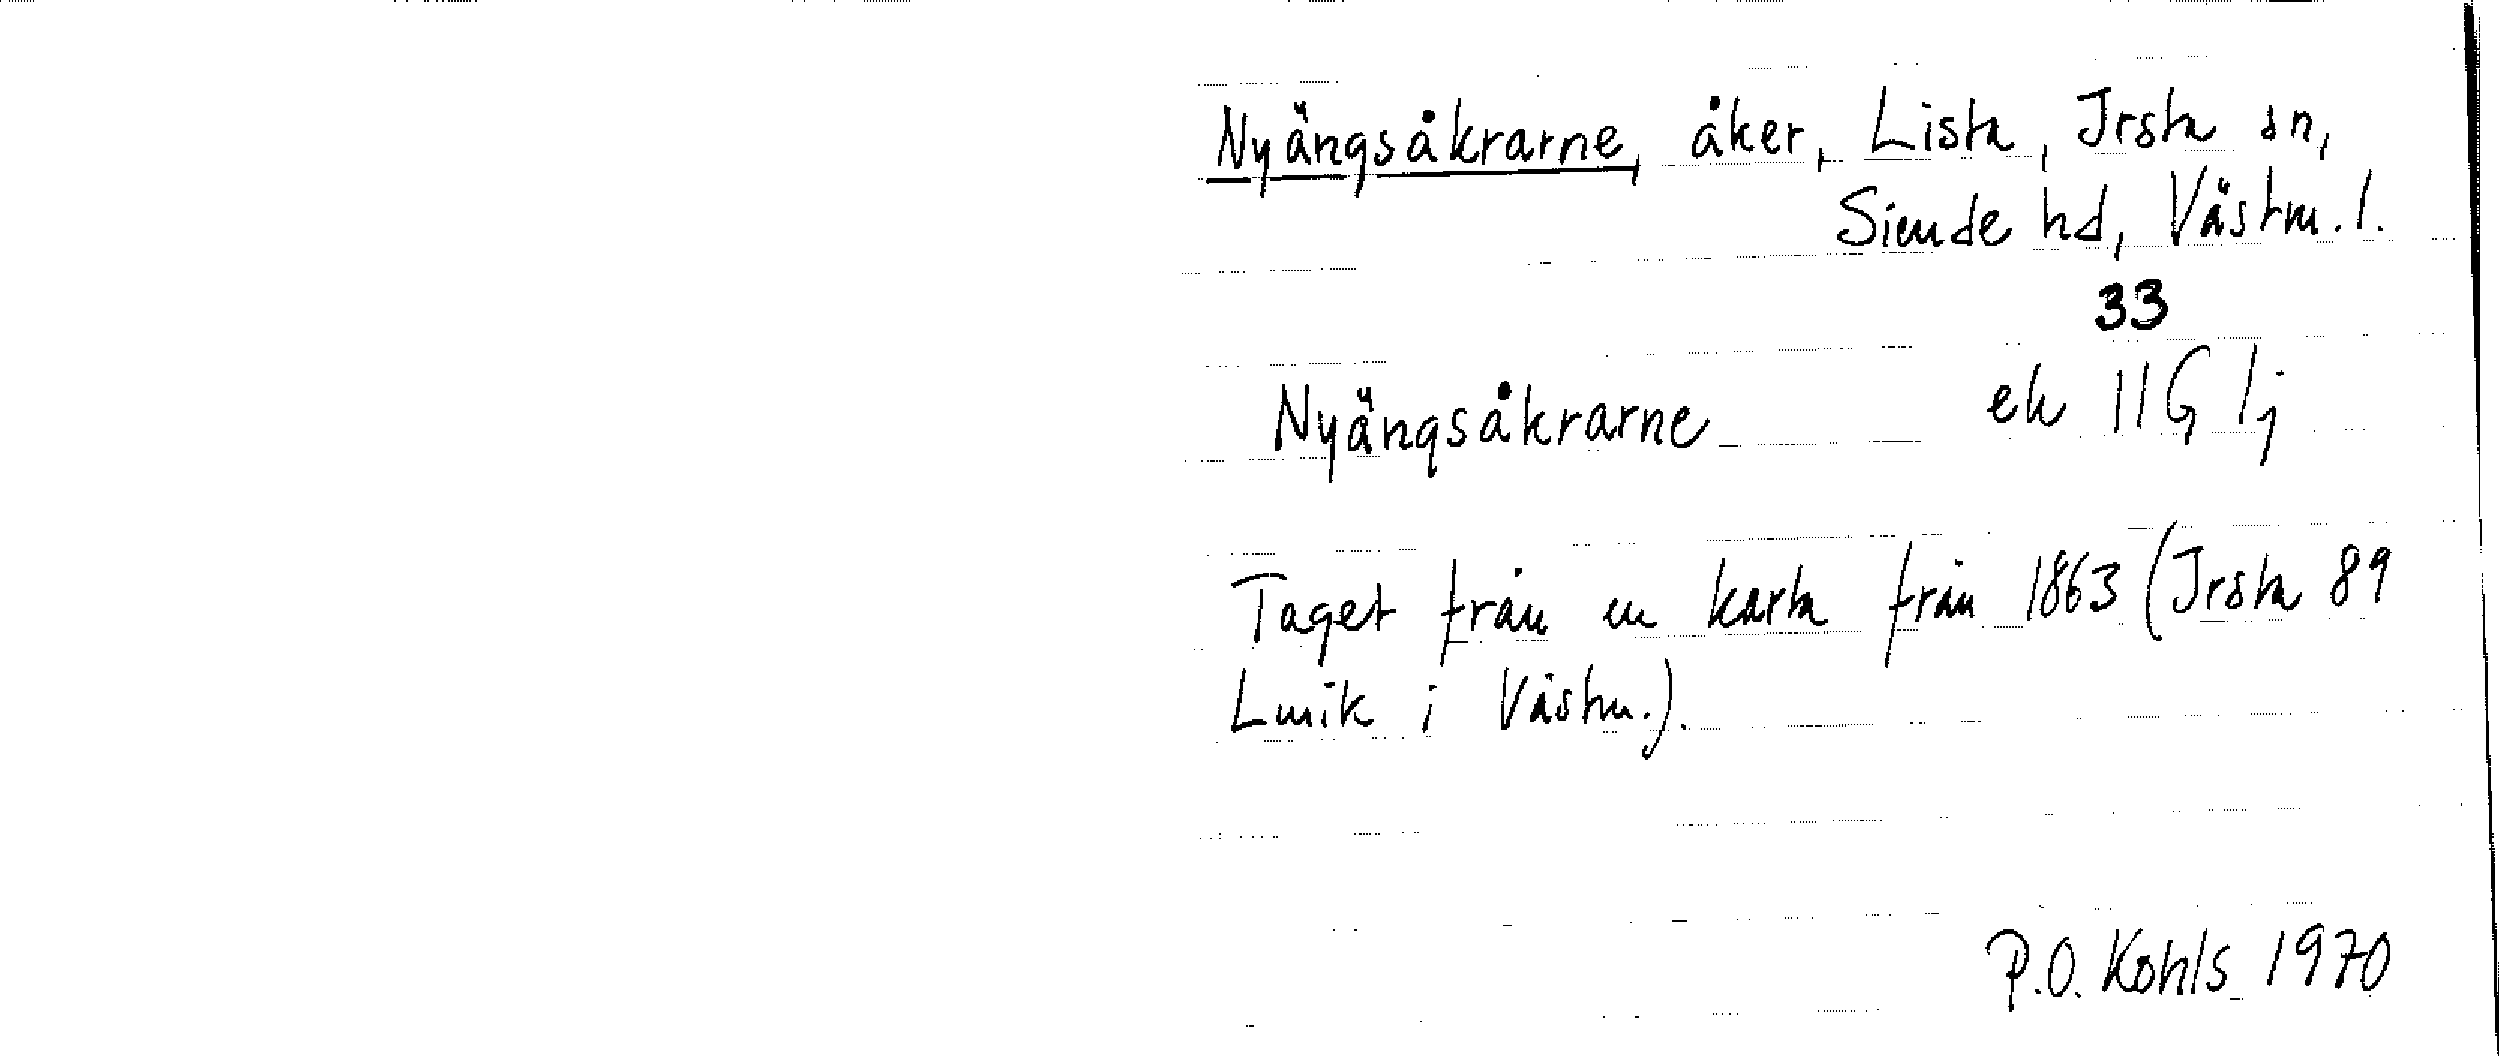 Nyängsåkrarne, åker, Lista, Irsta sn,
Siende hd, Västm. l.
33
Nyängsåkrarne ek 11G 1j
Taget från en karta från 1863 (Irsta 89
Lmik i Västm.).
P.O. Kohls 1970